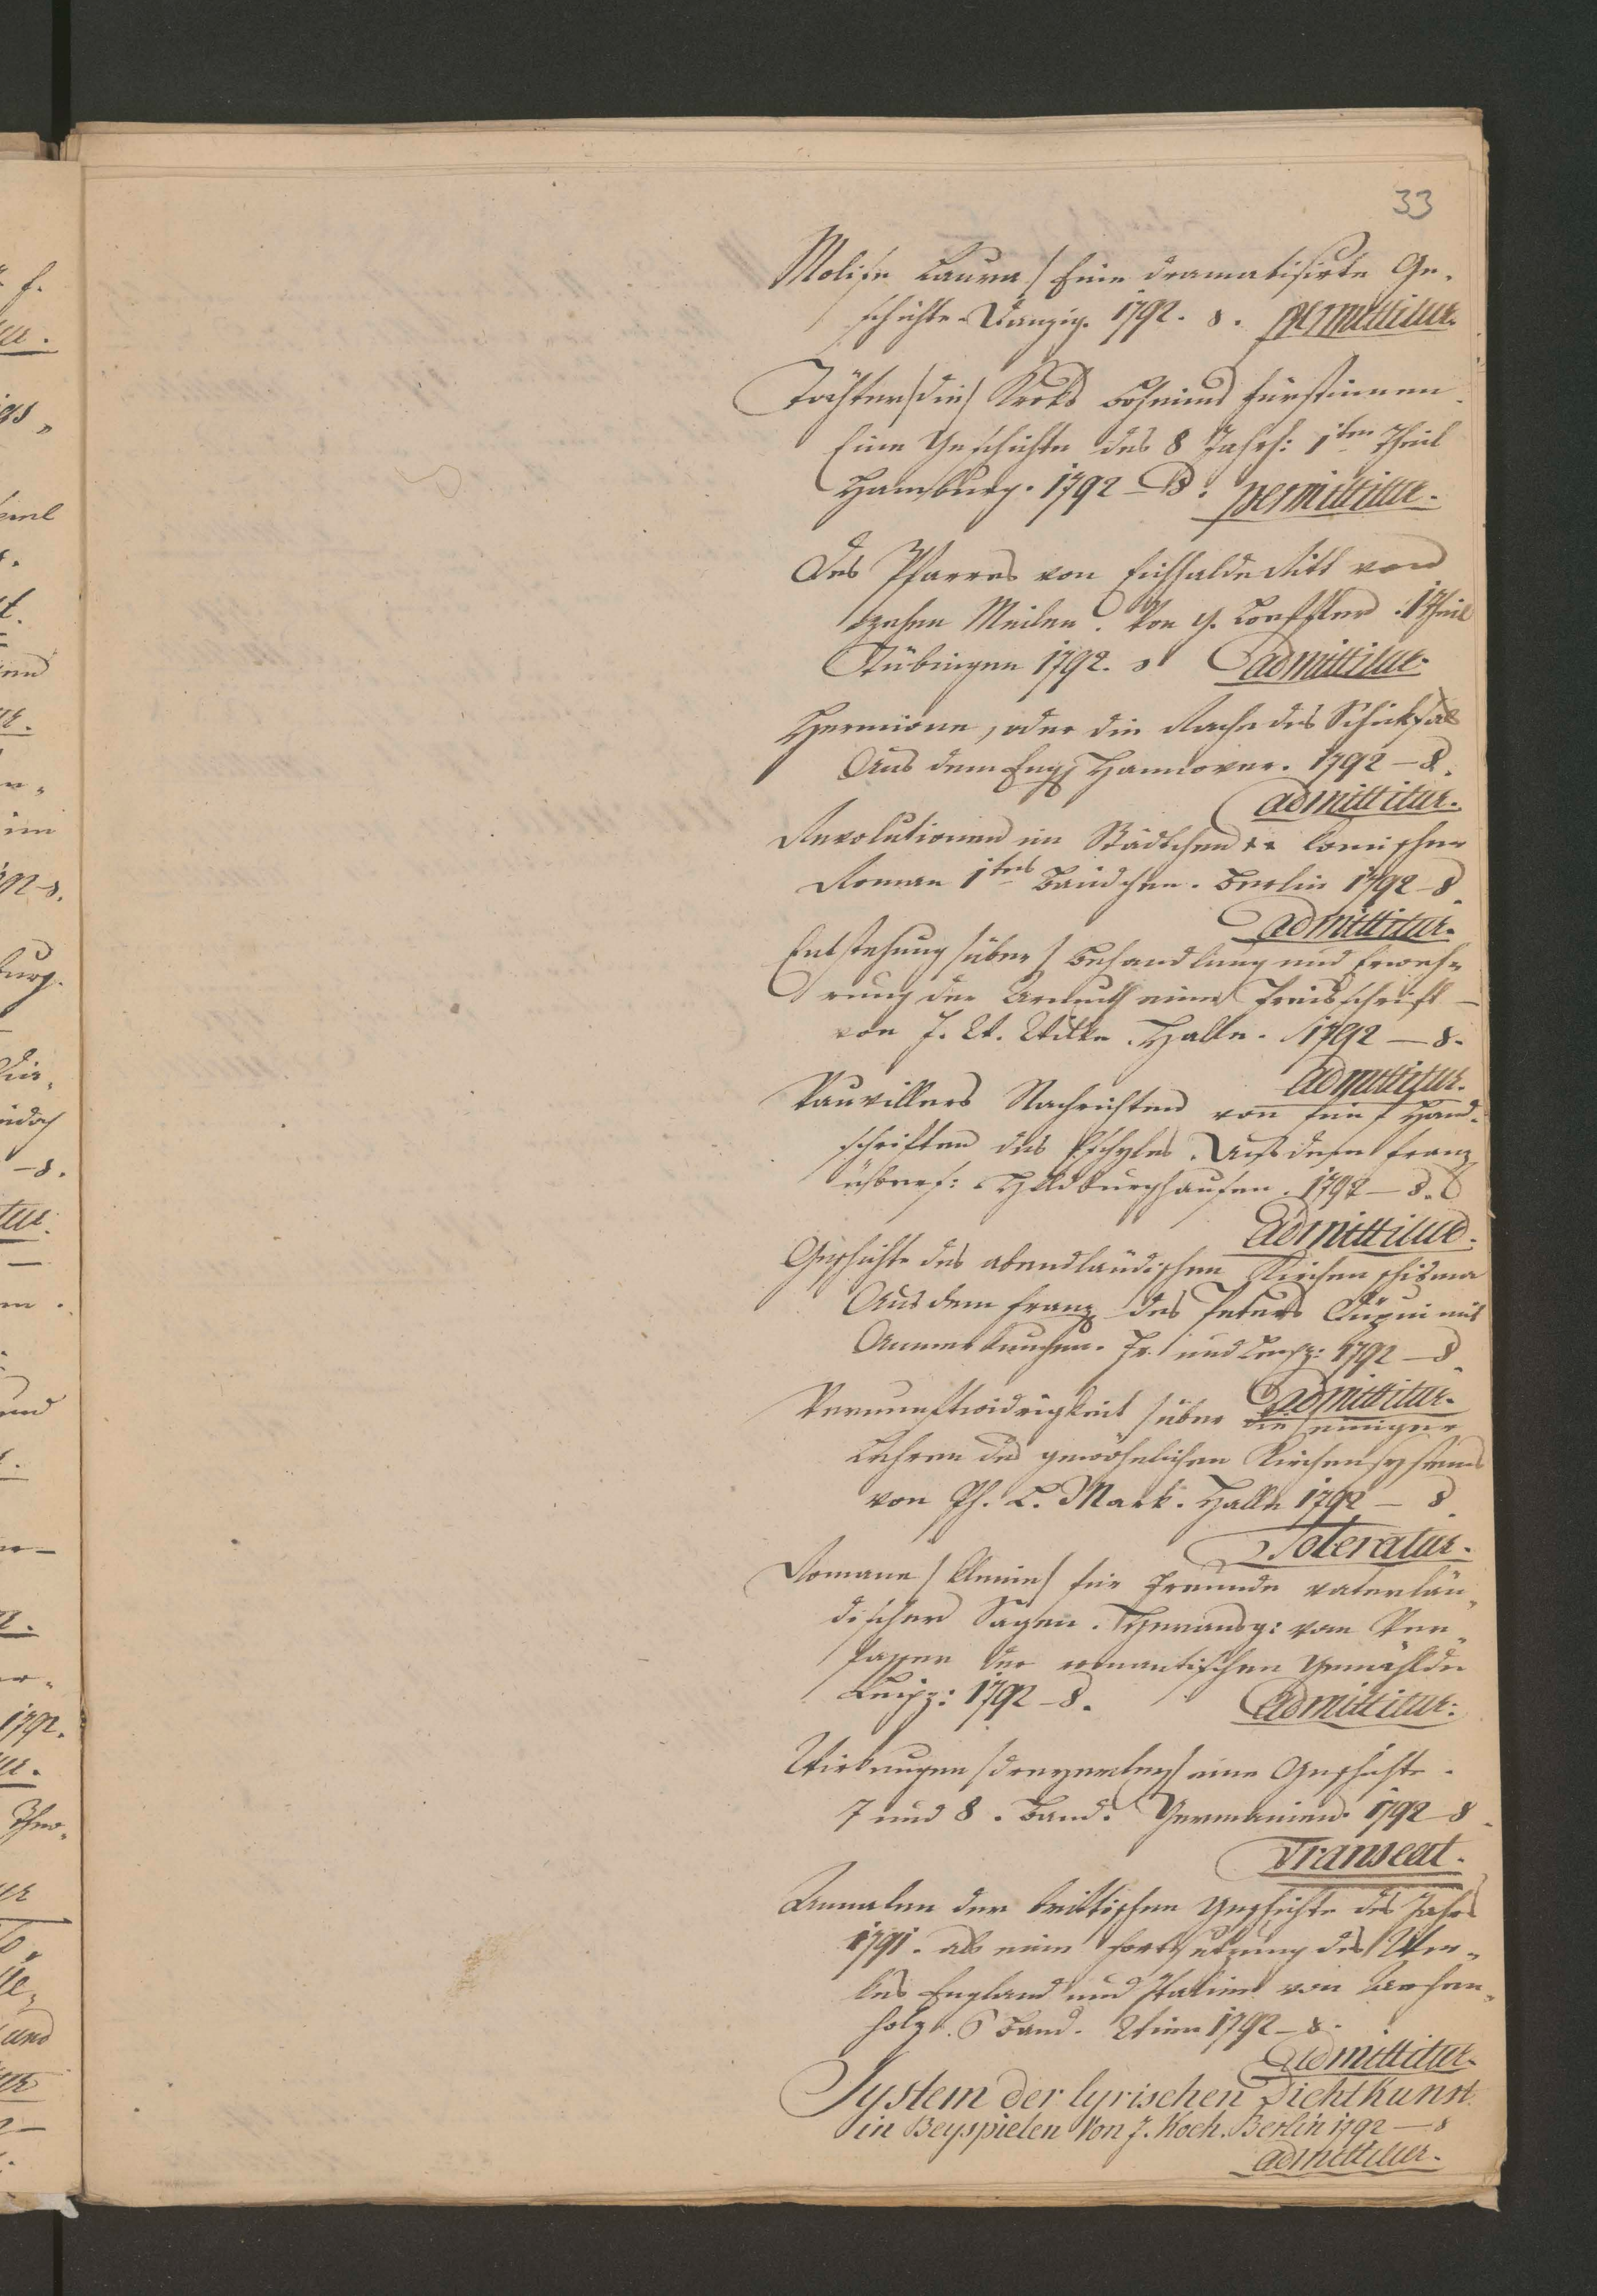 33
Molise Laura / Eine dramatisirte Ge-
schichte. Danzig. 1792. 8. permittitur.
Töchter /die/ Kroks Böheims Fürstinnen.
Eine Geschichte des 8 Jahrh: 1ten Theil
Hamburg. 1792 – 8. permittitur.
Des Pfarres von Eichhalde Ritt von
zehen Meilen. Von G. Loeffler. 1 Theil
Tübingen 1792. 8 admittitur.
Hermione, oder die Rache des Schicksals
Aus dem Engl. Hannover. 1792 – 8.
admittitur.
Revolutionen im Städtchen ** komischer
Roman 1tes Bändchen. Berlin 1792 – 8.
admittitur.
Entstehung /über/ Behandlung und Erweh-
rung der Armuth eine Preisschrift –
von J. C. Wilke. Halle. 1792 – 8.
admittitur.
Vauvillers Nachrichten von fünf Hand-
schriften des Eschyles. Aus dem Franz
übers: Hildburghausen. 1792 – 8.
admittitur.
Geschichte des abendländischen Kirchenschisma
Aus dem Franz des Peters Düpui mit
Anmerkungen. Fr. und Leipz: 1792 – 8.
admittitur.
Vernunftwidrigkeit /über die/ einiger
Lehren des gewöhnlichen Kirchensystems
von Ph. L. Mark. Halle 1792 – 8.
Toleratur.
Romane /kleine/ für Freunde vaterlän-
discher Sagen. Herausg: vom Ver-
fasser der romantischen Gemählde
Leipz: 1792 – 8. admittitur.
Wirkungen /dreyerley/ eine Geschichte.
7 und 8. Band. Germanien. 1792 – 8.
Transeat.
Annalen der brittischen Geschichte des Jahrs
1791. als eine Fortsetzung des Wer-
kes England und Italien von Archen-
holz. 6 Band. Wien 1792 – 8.
admittitur.
System der lyrischen Dichtkunst
in Beyspielen Von J. Koch. Berlin 1792 – 8
admittitur.